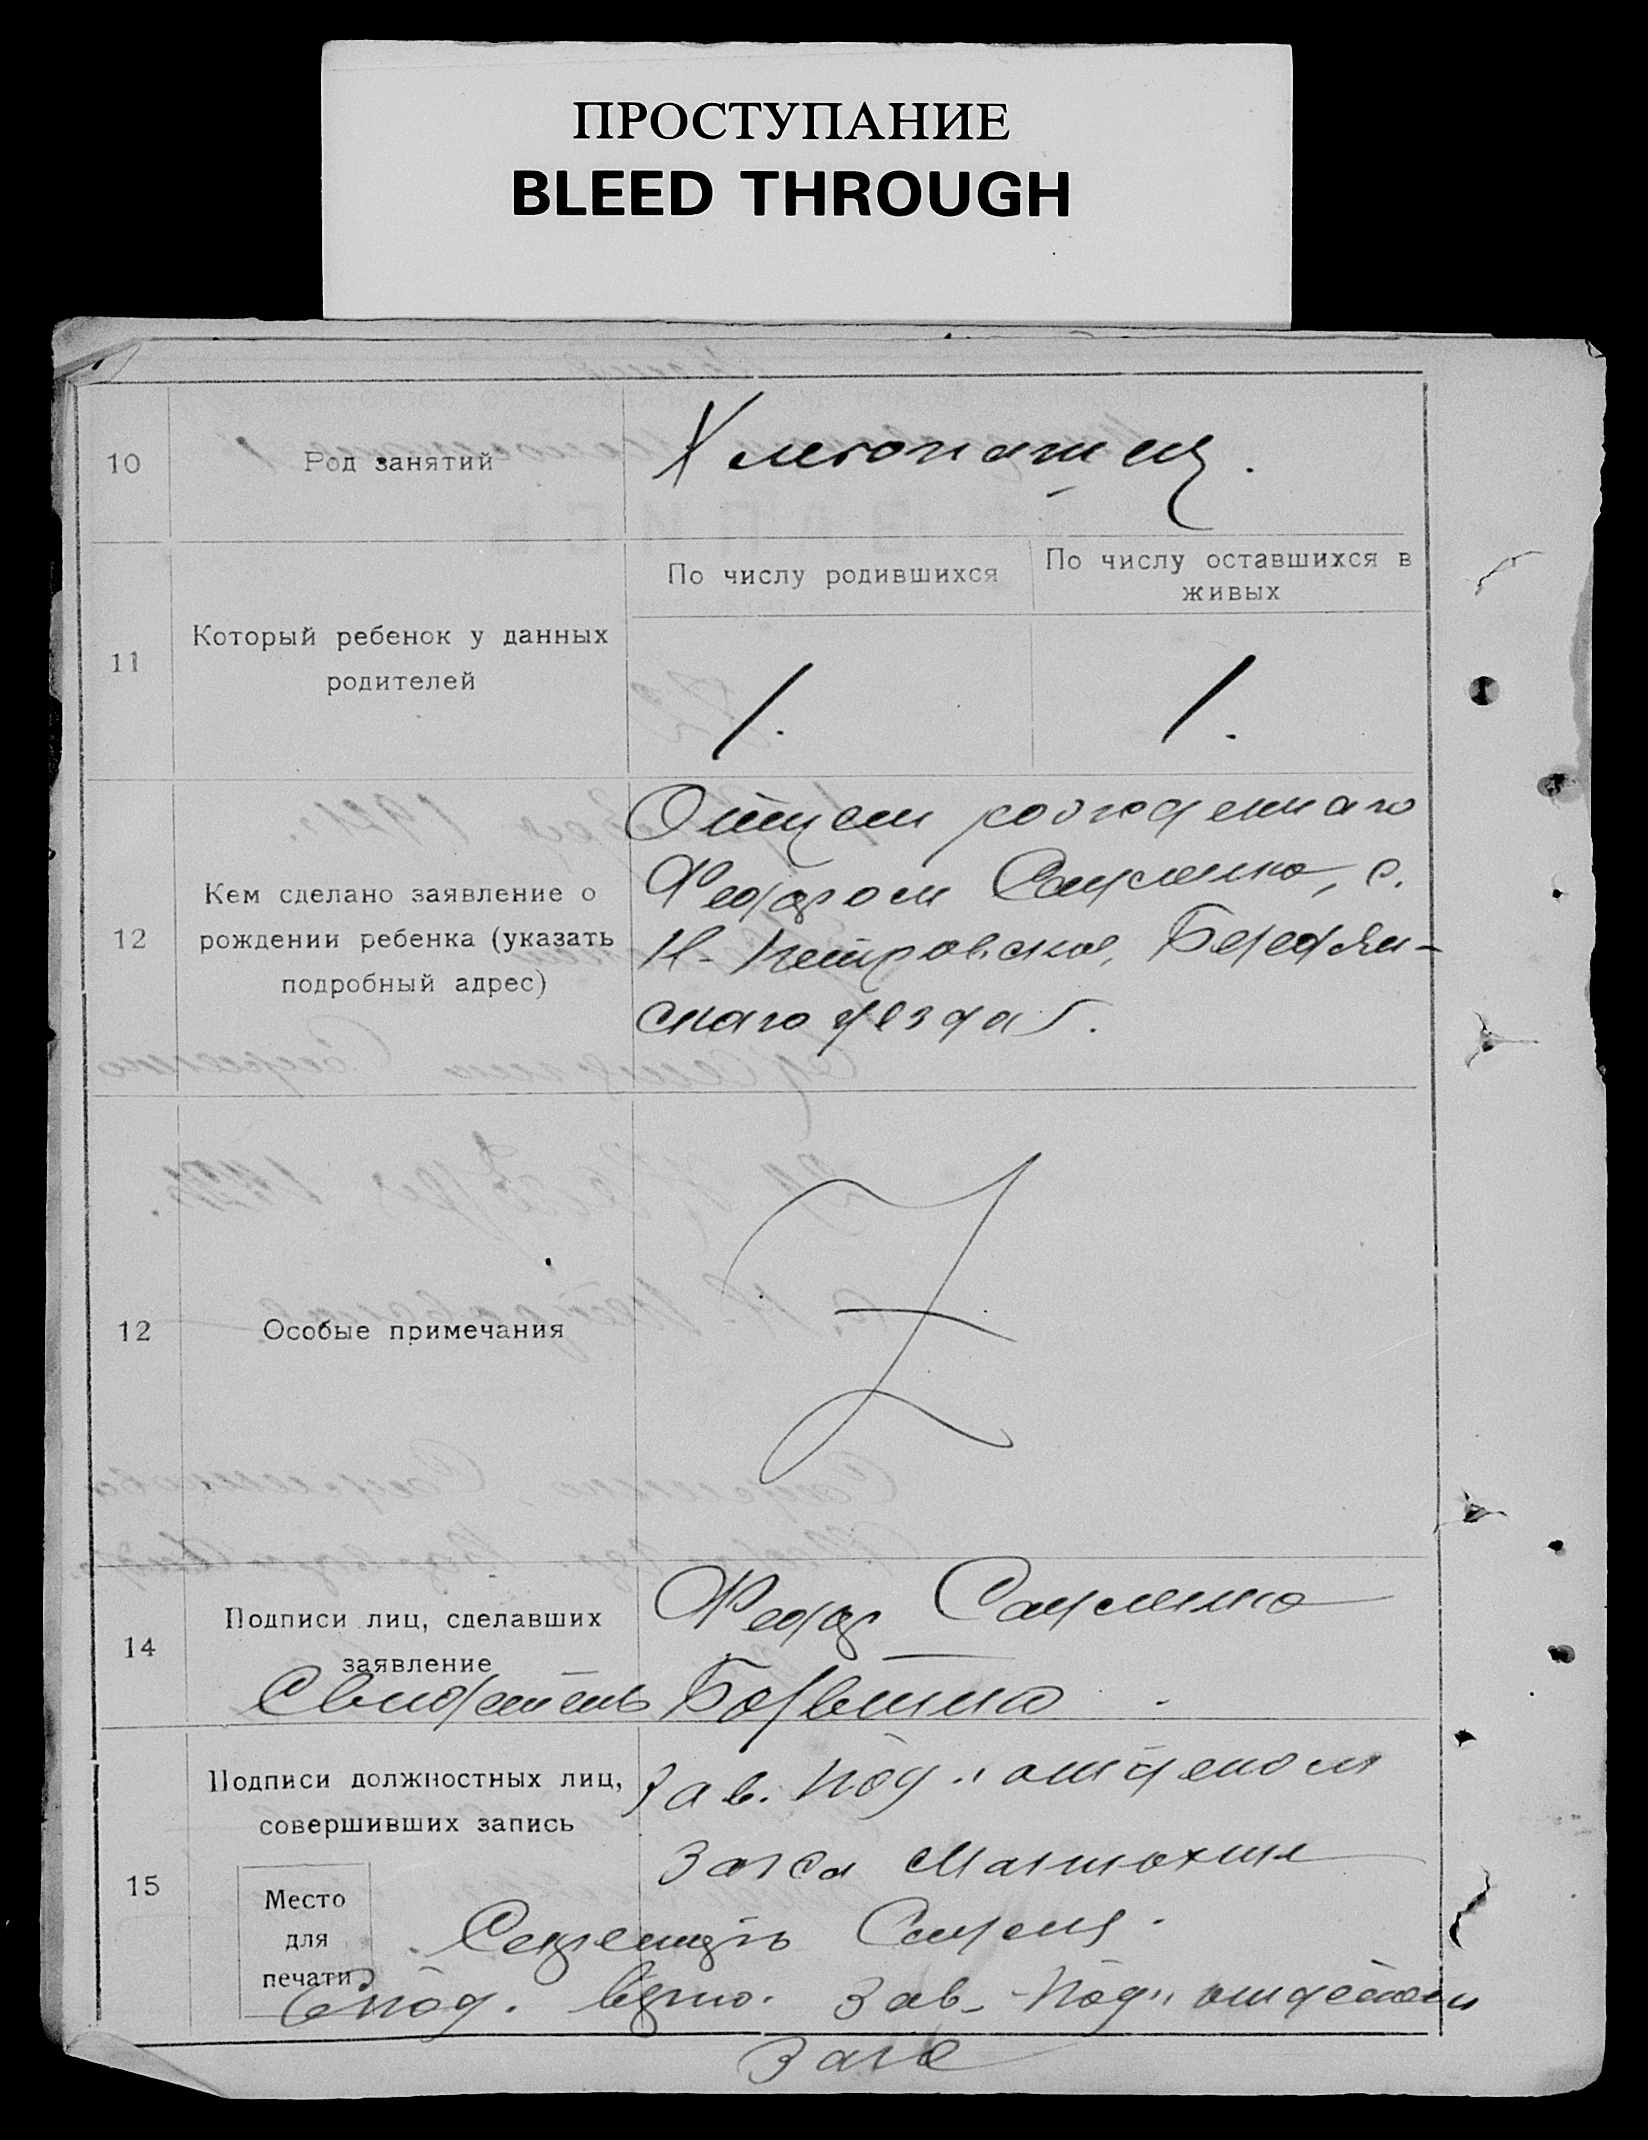 ПРОСТУПАНИЕ
BLEED THROUGH
10
Род занятий
Хлебопашец.
11
Который ребенок у данных
родителей
По числу родившихся
По числу оставшихся в
живых
1.
1.
12
Кем сделано заявление о
рождении ребенка (указать
подробный адрес)
Отцем рожденнаго
Федором Сауленко, с.
Н-Петровское, Бердян-
скаго уезда
12
Особые примечания
Z
14
Подписи лиц, сделавших
заявление
Федор Сауленко
Свидетель
15
Подписи должностных лиц,
совершивших запись
Зав. Под." отделом
Загса Матюхин
Место
для
печати
Секретарь
С под. верно. Зав- Под" отделом
Загс